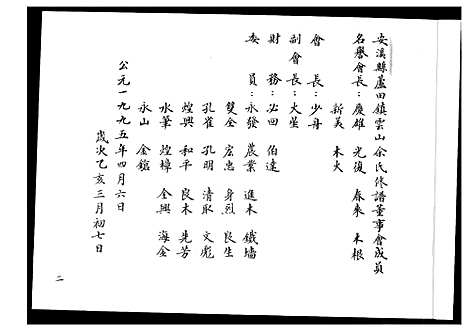 安溪縣蘆田鎮雲山余氏修譜董事會成員
名譽會長：慶雄 光復 春來 木根
新美 木火
會 長：少舟
副會長：火坐
財 務：必回 伯達
委 員：永發 農業 進木 鐵墻
雙全 宏忠 身烈 良生
孔雀 孔明 清取 文彪
煌興 和平 良木 先芳
水筆 煌樟 金興 海金
永山 金鎗
公元一九九五年四月六日
歲次乙亥三月初七日
二